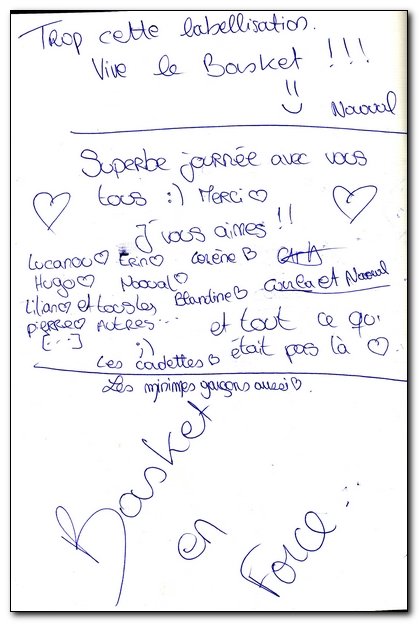 Trop cette labellisation.
Vive le Basket !!!
Nawal
Superbe journée avec vous
tous :) Merci ♡
J'vous aimes !!
Lucanou♡ Erin♡ Corène♡
Hugo♡ Nawal♡
Lilian♡ et tous les Blandine♡ et Nawal
pierre♡ Autres... et tout ce qui
[...] ;) était pas là ♡.
Les cadettes♡
Les minimes garçons aussi♡.
Basket
en
Force...